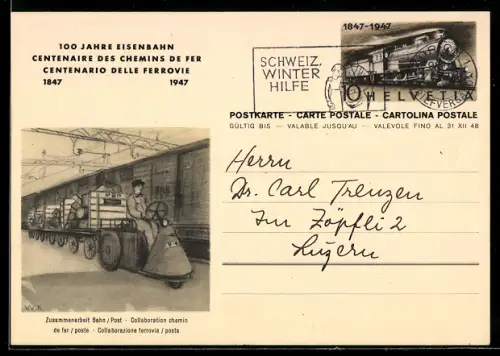 100 JAHRE EISENBAHN
CENTENAIRE DES CHEMINS DE FER
CENTENARIO DELLE FERROVIE
1847 1947
1847-1947
SCHWEIZ.
WINTER
HILFE
10 HELVETIA
POSTKARTE - CARTE POSTALE - CARTOLINA POSTALE
GÜLTIG BIS — VALABLE JUSQU'AU — VALEVOLE FINO AL 31 XII 48
Herrn
Dr. Carl Trenzen
Im Zöpfli 2
Luzern
Zusammenarbeit Bahn/Post · Collaboration chemin
de fer/poste · Collaborazione ferrovia/posta